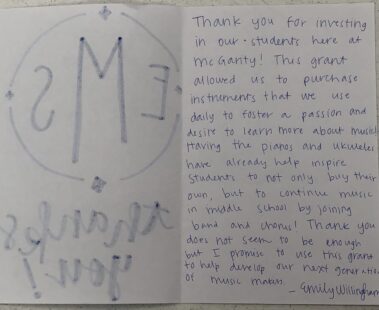 EMS
thanks
you!
Thank you for investing
in our students here at
McGanty! This grant
allowed us to purchase
instruments that we use
daily to foster a passion and
desire to learn more about music!
Having the pianos and ukuleles
have already help inspire
students to not only buy their
own, but to continue music
in middle school by joining
band and chorus! Thank you
does not seem to be enough
but I promise to use this grant
to help develop our next generation
of music makers. - Emily Willingham